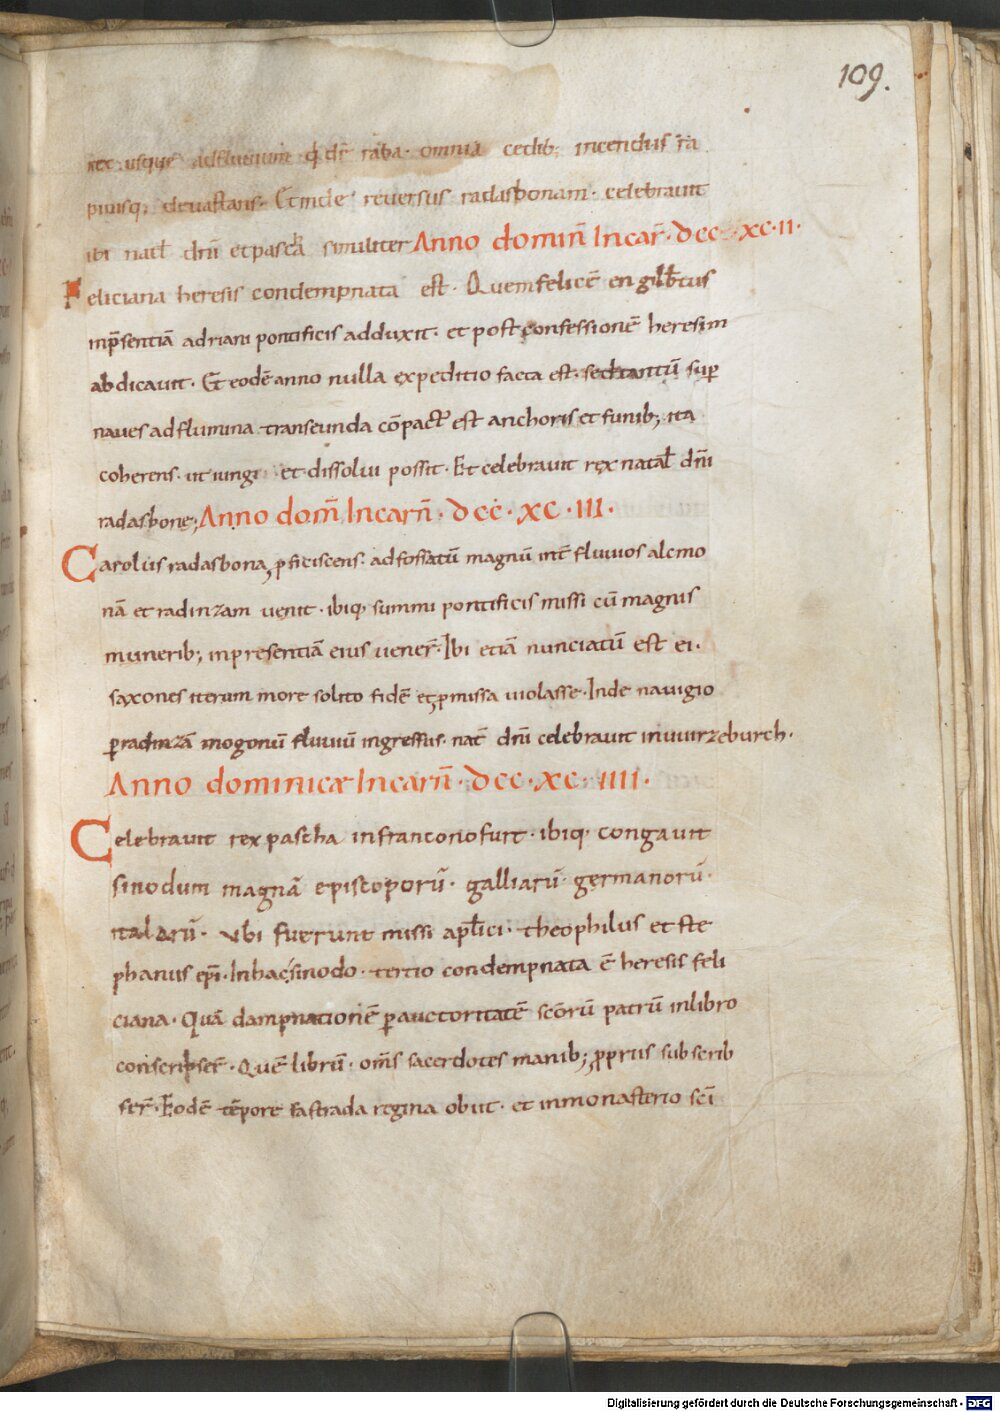 109.
nec usque ad fluuium qd dr̄ raba · omnia cedib; incendiis ra
piuisq; deuastans · Et inde reuersus radasbonam · celebrauit
ibi natł dn̄i et pascā similiter Anno domin̄ Incar̄ · dcc · xc · ii ·
Feliciana heresis condempnata est · Quem felicē engilb̄tus
inp̄sentiā adriani pontificis adduxit · et post confessionē heresim
abdicauit · Et eodē anno nulla expeditio facta est · sed tantū sup̄
naues ad flumina transeunda cōpact̄ est anchoris et funib; ita
coherens · ut iungi et dissolui possit · Et celebrauit rex natał dn̄i
radasbone; Anno dom̄ Incarn̄ · dcc · xc · III ·
Carolus radasbona, pficiscens · ad fossatū magnū int̄ fluuios alcmo
nā et radinzam uenit · ibiq; summi pontificis missi cū magnis
munerib; inpresentiā eius uener̄ · Ibi etiā nunciatū est ei ·
saxones iterum more solito fidē et pmissa uiolasse · Inde nauigio
p radinzā mogonū fluuiū ingressus · nat̄ dn̄i celebrauit inuuirzeburch ·
Anno dominicæ Incarn̄ · dcc · xc · IIII ·
Celebrauit rex pascha infranconofurt · ibiq; congauit
sinodum magnā episcoporū · galliarū germanorū ·
italarū · Vbi fuerunt missi apłici · theophilus et ste
phanus ep̄i · In hac sinodo · tertio condempnata ē heresis feli
ciana · Quā dampnationē p auctoritatē sc̄orū patrū inlibro
conscripser̄ · Quē librū · om̄s sacerdotes manib; ppriis subscrib
ser̄ · Eodē tēpore Fastrada regina obiit · et inmonasterio sc̄i
Digitalisierung gefördert durch die Deutsche Forschungsgemeinschaft - DFG